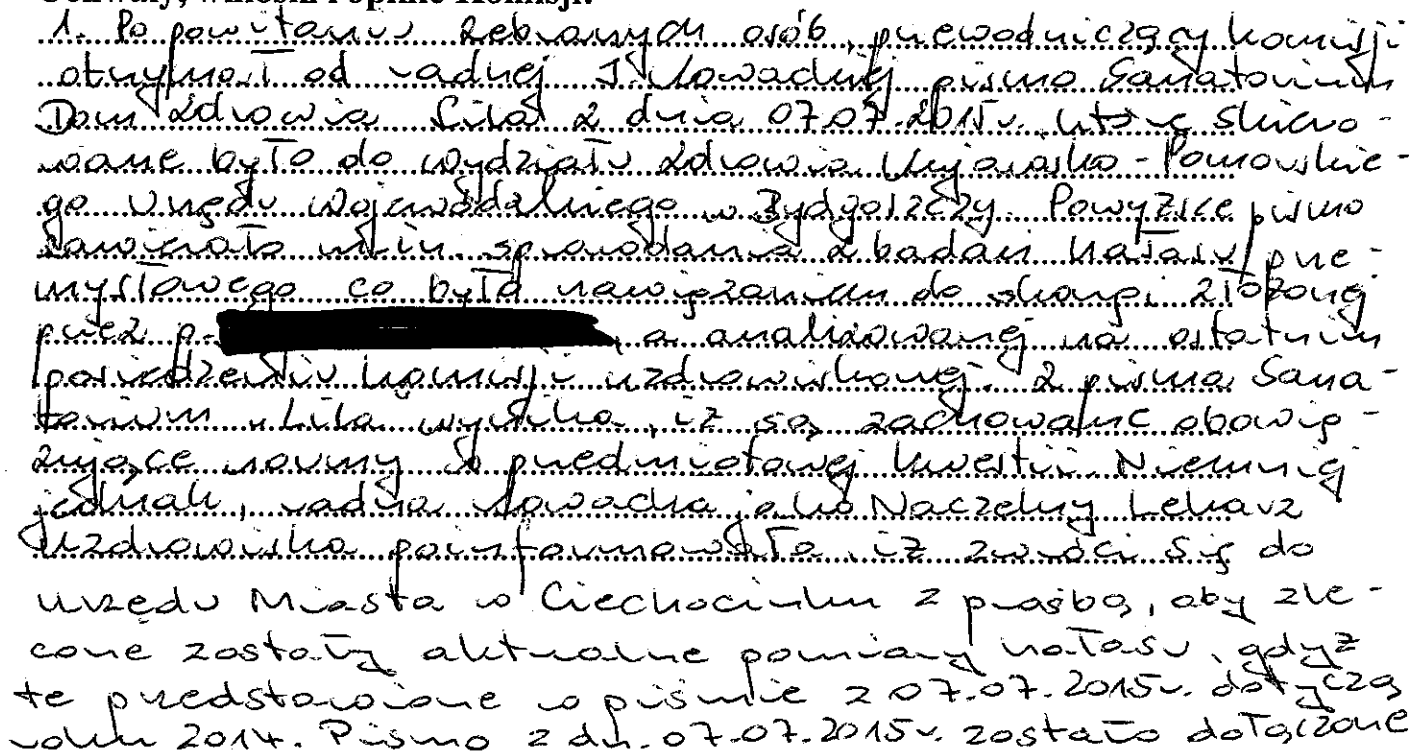 Uchwały, wnioski i opinie Komisji:
1. Po powitaniu zebranych osób, przewodniczący komisji
otrzymał od radnej Nowackiej pismo Sanatorium
Dom Zdrowia Lila z dnia 07.07.2015r. które skiero-
wane było do wydziału zdrowia Kujawsko-Pomorskie-
go Urzędu Wojewódzkiego w Bydgoszczy. Powyższe pismo
zawierało m.in. sprawozdania z badań hałasu prze-
mysłowego co było nawiązaniem do skargi złożonej
przez p. , a analizowanej na ostatnim
posiedzeniu komisji uzdrowiskowej. Z pisma Sana-
torium Lila wynika, iż są zachowane obowią-
zujące normy w przedmiotowej kwestii. Niemniej
jednak, radna Nowacka jako Naczelny Lekarz
Uzdrowiska poinformowała, iż zwróci się do
Urzędu Miasta w Ciechocinku z prośbą, aby zle-
cone zostały aktualne pomiary hałasu, gdyż
te przedstawione w piśmie z 07.07.2015r. dotyczą
roku 2014. Pismo z dn. 07.07.2015r. zostało dołączone